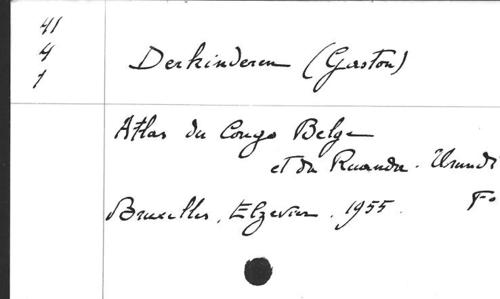 41
4
1
Derkinderen (Gaston)
Atlas du Congo Belge
et du Ruanda-Urundi
Bruxelles, Elzevier. 1955. Fo